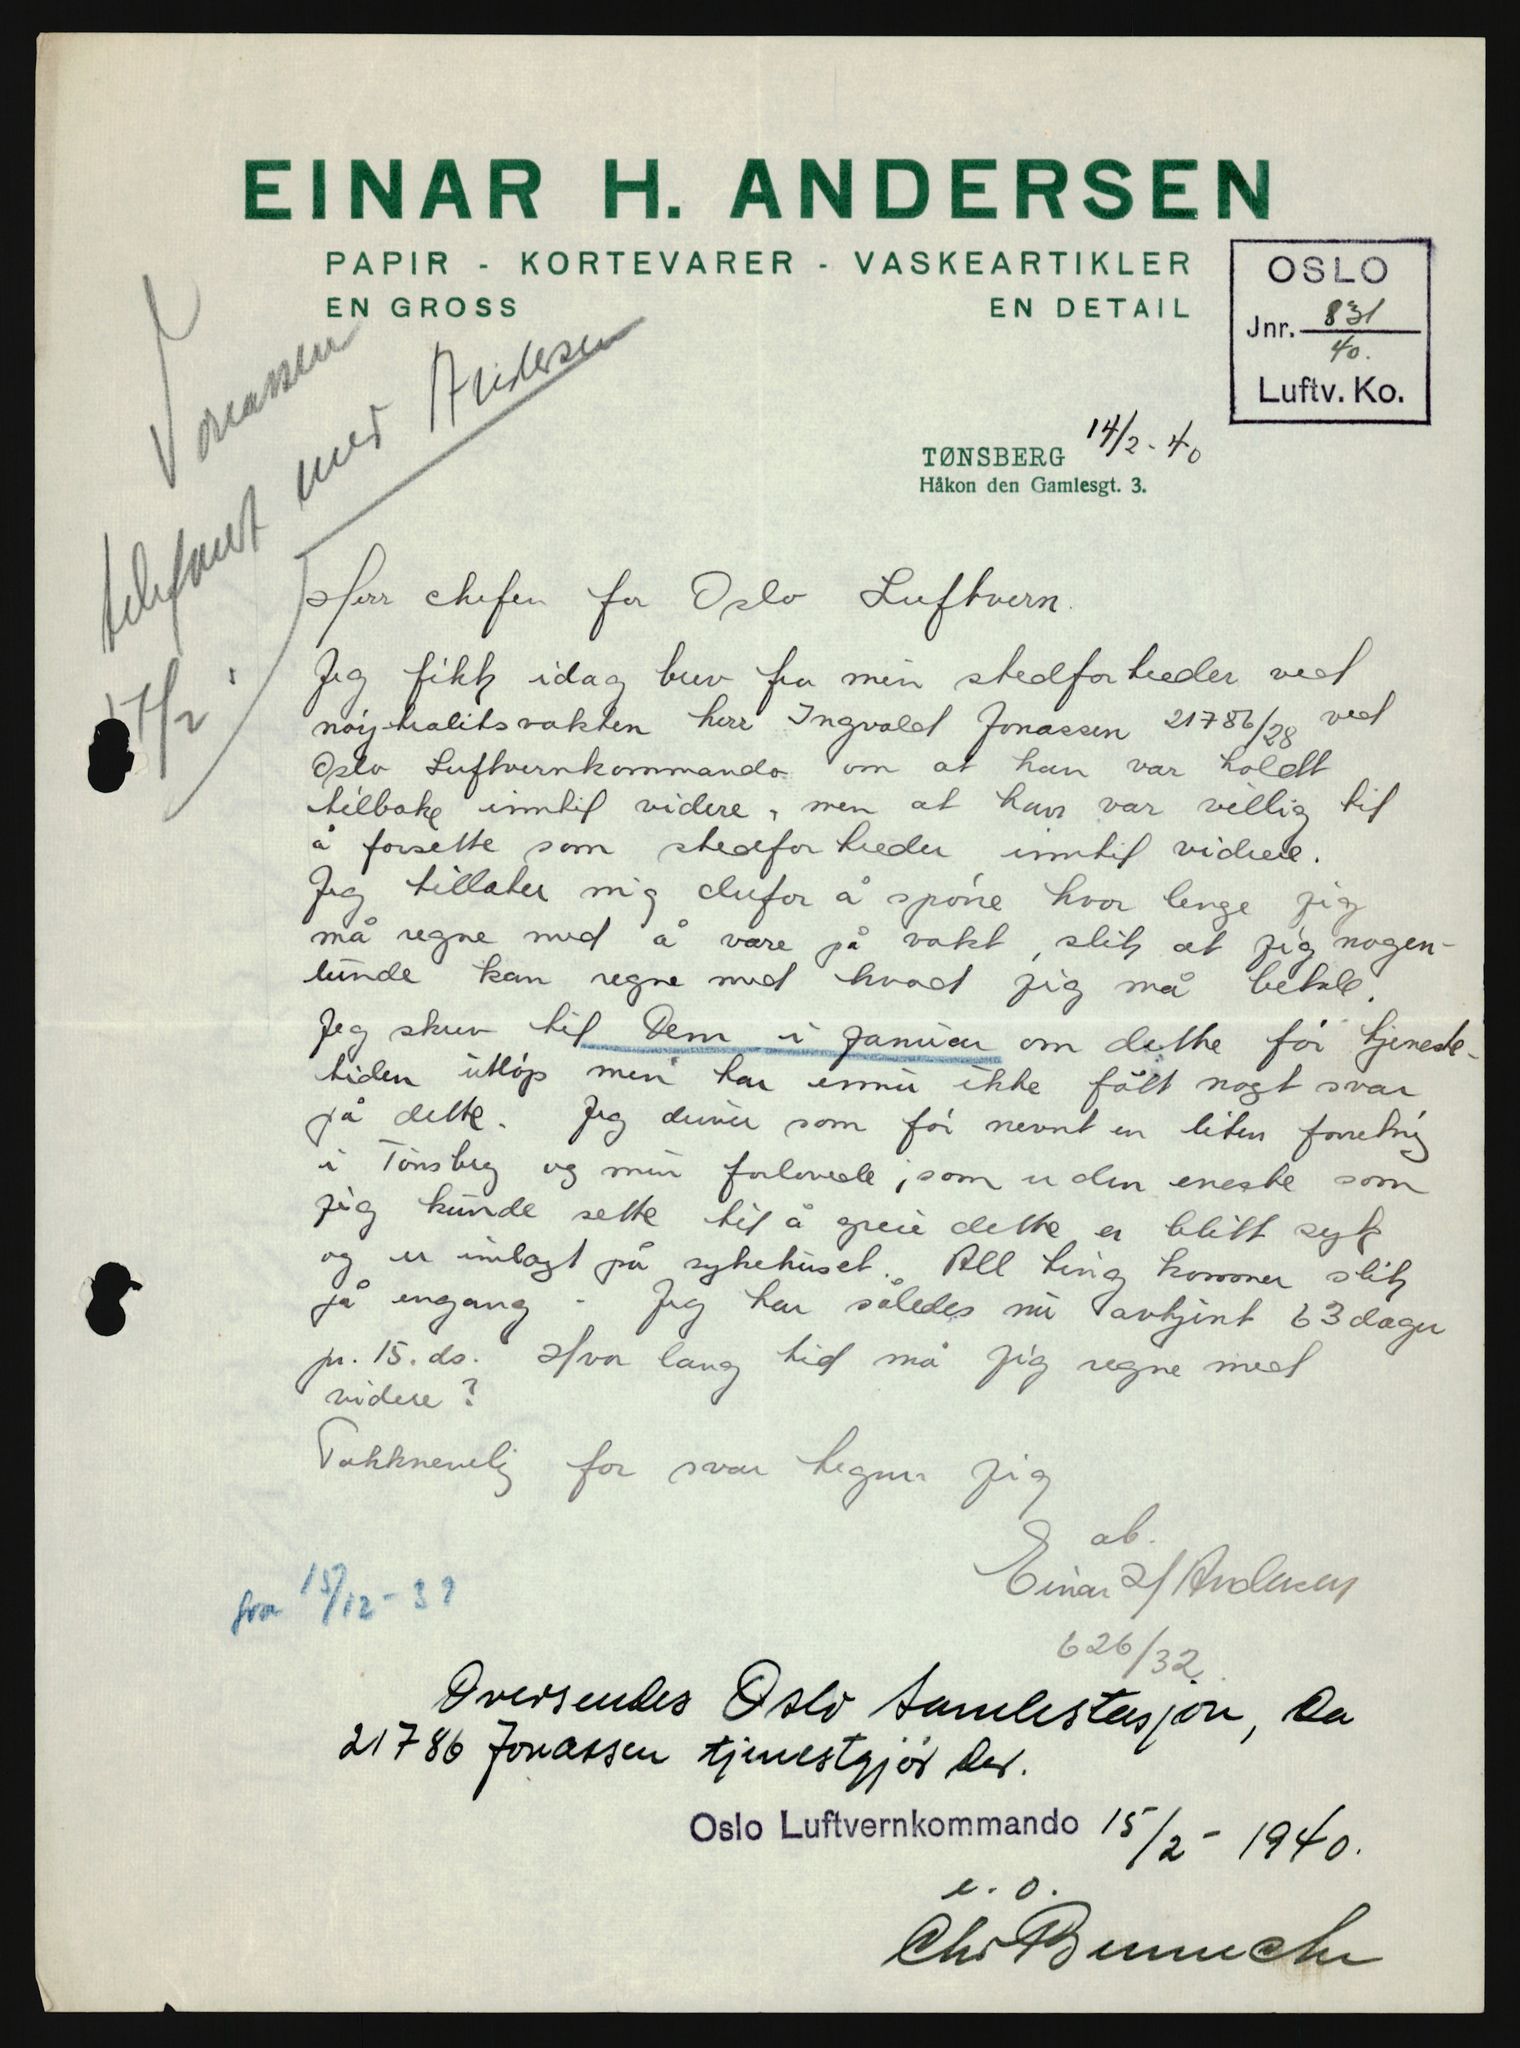 EINAR H. ANDERSEN
PAPIR - KORTEVARER - VASKEARTIKLER
EN GROSS EN DETAIL
OSLO
Jnr. 831
40.
Luftv. Ko.
TØNSBERG 14/2-40
Håkon den Gamlesgt. 3.
Jonassen
telefonert med Andersen
17/2
Herr chefen for Oslo Luftvern.
Jeg fikk idag brev fra min stedfortreder ved
nøytralitsvakten herr Ingvald Jonassen 21786/28 ved
Oslo Luftvernkommando om at han var holdt
tilbake inntil videre, men at han var villig til
å forsette som stedfortreder inntil videre.
Jeg tillater mig derfor å spørre hvor lenge jeg
må regne med å være på vakt, slik at jeg nogen-
lunde kan regne med hvad jeg må betale.
Jeg skrev til Dem i januar om dette før tjeneste-
tiden utløp men har ennu ikke fått nogt svar
på dette. Jeg driver som før nevnt en liten forretnig
i Tønsberg og min forlovede, som er den eneste som
jeg kunde sette til å greie dette er blitt syk
og er innlagt på sykehuset. All ting kommer slik
på engang - Jeg har således nu avtjent 63 dager
pr. 15. ds. Hvor lang tid må jeg regne med
videre?
Takknemelig for svar tegner jeg
ab.
Einar H Andersen
626/32
fra 15/12-39
Oversendes Oslo Samlestasjon, da
21786 Jonassen tjenestgjør der.
Oslo Luftvernkommando 15/2-1940.
e. o.
Chr